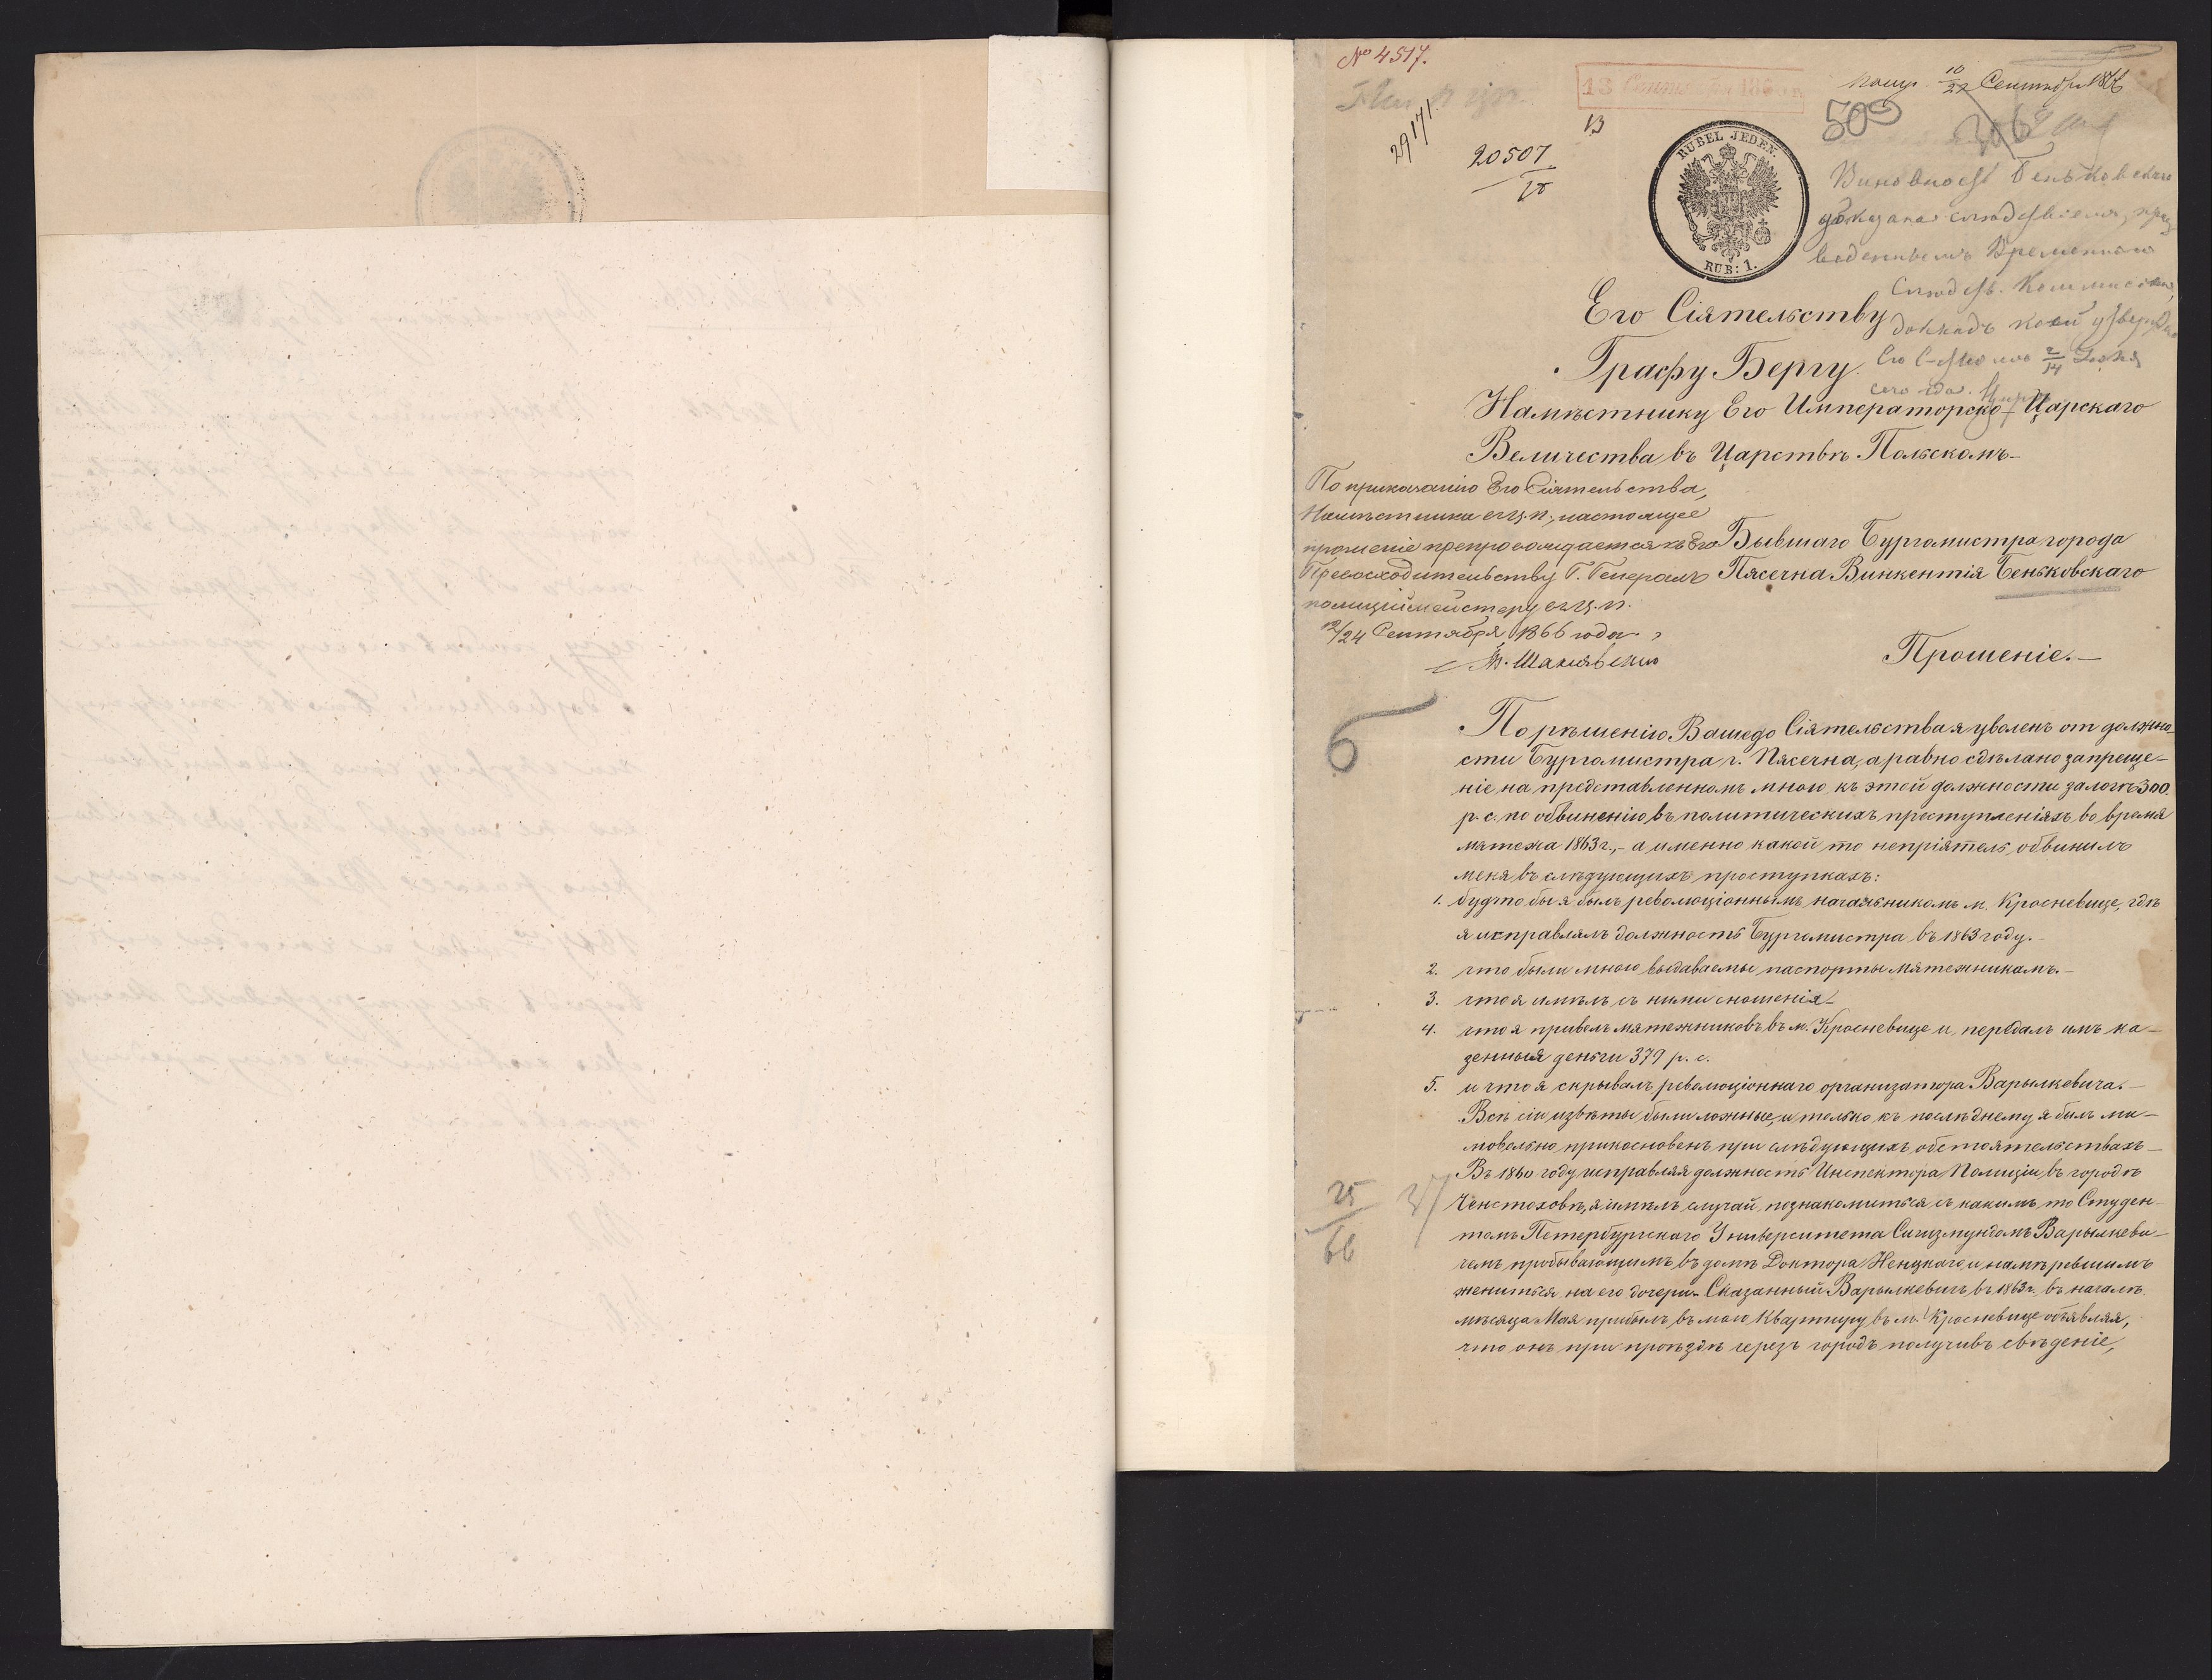 № 4517.
13 Сентября 186
получ. 10/22 Сентября 1866
500
29171.
20507
13
RUBEL JEDEN.
RUB: 1.
Виновность Беньковскаго
доказана слѣдствіемъ, произ
веденнымъ Временною
Слѣдств. Коммисіею,
докладъ коей утвержд
Его С-ство 2/14 Іюня
сего года.
Его Сіятельству
Графу Бергу.
Намѣстнику Его Императорско-Царскаго
Величества въ Царствѣ Польскомъ-
По приказанію Его Сіятельства,
Намѣстника въ Ц. П., настоящее
прошеніе препровождается къ Его
Превосходительству Г. Генералъ
полиціймейстеру въ Ц. П.
12/24 Сентября 1866 года.
Бывшаго Бургомистра города
Пясечна Викентія Беньковскаго
Прошеніе.-
6
По рѣшенію Вашего Сіятельства я уволенъ от должно
сти Бургомистра г. Пясечна, а равно сдѣлано запреще-
ніе на представленномъ мною къ этой должности залогѣ 300
р. с. по обвиненію въ политическихъ преступленіяхъ во время
мятежа 1863 г.,- а именно какой то непріятель обвинилъ
меня въ слѣдующихъ проступкахъ:
1. будто бы я былъ революціоннымъ начальникомъ м. Кросневице, гдѣ
я исправлялъ должность Бургомистра въ 1863 году.-
2. что были мною выдаваемы паспорты мятежникамъ.-
3. что я имѣлъ съ ними сношенія-
4. что я привелъ мятежниковъ въ м. Кросневице и передалъ имъ ка-
зенныя деньги 379 р. с.
5. и что я скрывалъ революціоннаго организатора Варылкевича.-
Всѣ сіи извѣты были ложные, и только къ послѣднему я былъ ми-
мовольно прикосновенъ при слѣдующихъ обстоятельствахъ-
Въ 1860 году исправляя должность Инспектора Полиціи въ городѣ
Ченстоховѣ, я имѣлъ случай познакомиться съ какимъ то Студен-
томъ Петербургскаго Университета Сигизмундомъ Варылкеви-
чемъ пробывающимъ въ домѣ Доктора Ненцкаго и намѣревшимъ
жениться на его дочери- Сказанный Варылкевичъ въ 1863 г. въ началѣ
мѣсяца Мая прибылъ въ мою Квартиру въ м. Кросневице объявляя,
что онъ при проѣздѣ черезъ городъ получивъ свѣденіе,
25
66